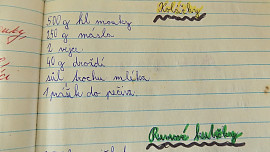 Koláčky
500 g hl mouky
250 g másla
2 vejce
40 g droždí
sůl trochu mléka
1 prášek do pečiva
Rumové kuličky